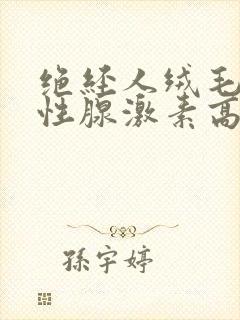 绝经人绒毛
性腺激素高
孫宇婷